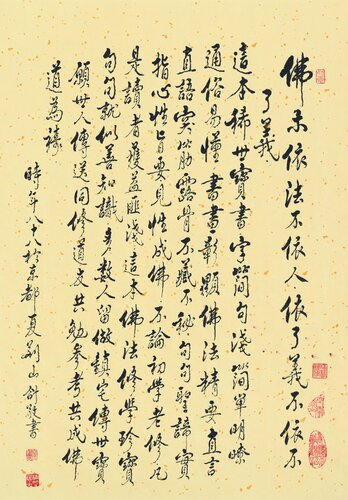 佛示依法不依人依了義不依不
了義
這本稀世寶書字簡句淺簡單明嘹
通俗易懂書書彰顯佛法精要直言
直語實必露骨不藏不秘句句聖諦實
指心性旨要見性成佛不論初學老修凡
是讀者獲益匪淺這本佛法修學珍寶
句句就似善知識多數人留做鎮宅傳世寶
願世人傳送同修道友共勉參考共成佛
道為禱
時年八十八於京都夏荊山敘題書